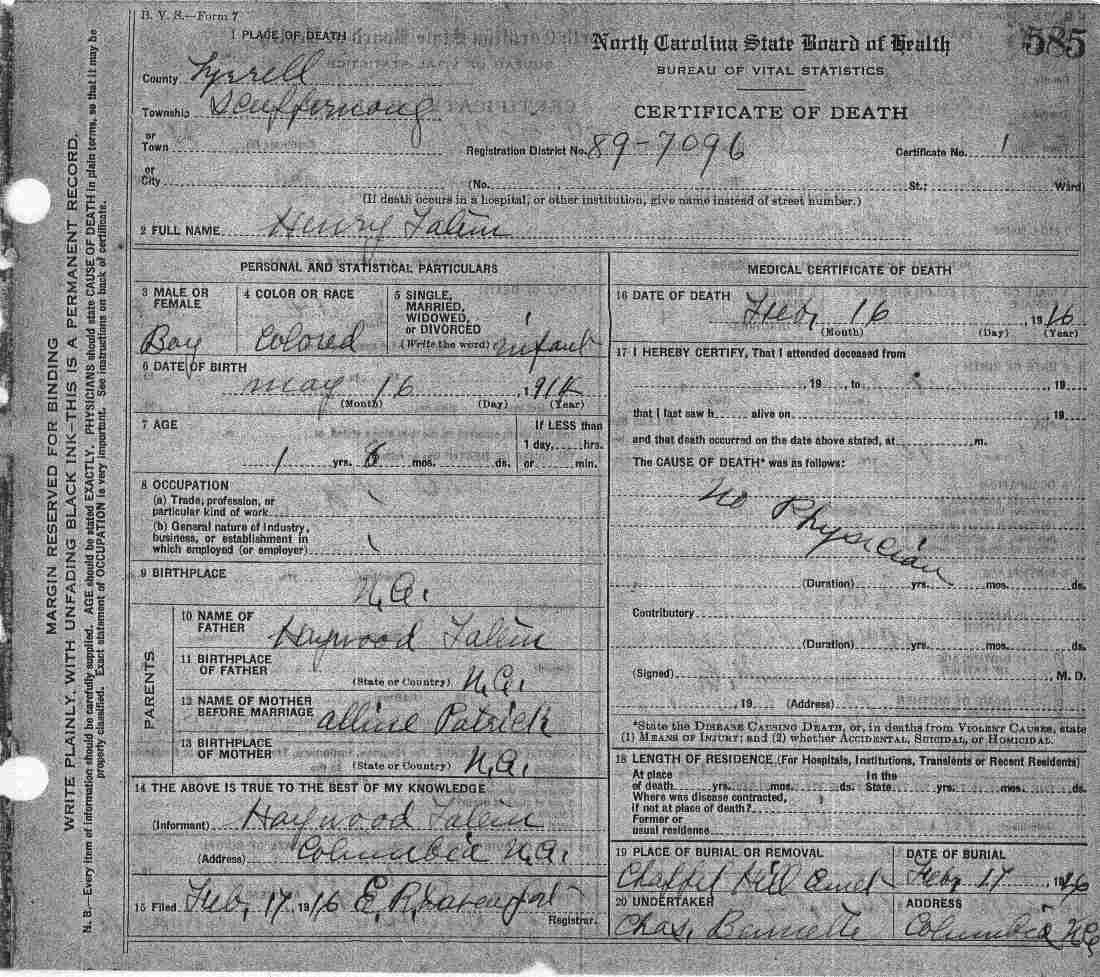 B. V. S.—Form 7
585
North Carolina State Board of Health
BUREAU OF VITAL STATISTICS
CERTIFICATE OF DEATH
1 PLACE OF DEATH
County Tyrrell
Township Scuppernong
or
Town
or
City
Registration District No. 89-7096
Certificate No. 1
(No. , St.; Ward)
(If death occurs in a hospital, or other institution, give name instead of street number.)
2 FULL NAME Henry
PERSONAL AND STATISTICAL PARTICULARS
3 MALE OR FEMALE
Boy
4 COLOR OR RACE
Colored
5 SINGLE, MARRIED, WIDOWED, or DIVORCED
(Write the word) infant
6 DATE OF BIRTH
may 16, 1914
(Month) (Day) (Year)
7 AGE
1 yrs. 8 mos. ds.
If LESS than
1 day, hrs.
or min.
8 OCCUPATION
(a) Trade, profession, or
particular kind of work
(b) General nature of Industry,
business, or establishment in
which employed (or employer)
9 BIRTHPLACE
N.C.
PARENTS
10 NAME OF FATHER
Haywood
11 BIRTHPLACE OF FATHER
(State or Country) N.C.
12 NAME OF MOTHER BEFORE MARRIAGE
alline Patrick
13 BIRTHPLACE OF MOTHER
(State or Country) N.C.
14 THE ABOVE IS TRUE TO THE BEST OF MY KNOWLEDGE
(Informant) Haywood
(Address) Columbia N.C.
15 Filed Feb, 17 1916 E. R. Davenport
Registrar.
MEDICAL CERTIFICATE OF DEATH
16 DATE OF DEATH
Feb, 16 1916
(Month) (Day) (Year)
17 I HEREBY CERTIFY, That I attended deceased from
, 19 to , 19
that I last saw h alive on 19
and that death occurred on the date above stated, at m.
The CAUSE OF DEATH* was as follows:
No Physician
(Duration) yrs. mos. ds.
Contributory
(Duration) yrs. mos. ds.
(Signed) , M. D.
, 19 (Address)
*State the DISEASE CAUSING DEATH, or, in deaths from VIOLENT CAUSES, state
(1) MEANS OF INJURY; and (2) whether ACCIDENTAL, SUICIDAL, or HOMICIDAL.
18 LENGTH OF RESIDENCE (For Hospitals, Institutions, Transients or Recent Residents)
At place of death yrs. mos. ds. In the State yrs. mos. ds.
Where was disease contracted,
if not at place of death?
Former or
usual residence
19 PLACE OF BURIAL OR REMOVAL
Chappel Hill
DATE OF BURIAL
Feb, 17 1916
20 UNDERTAKER
Chas,
ADDRESS
Columbia N.C.
MARGIN RESERVED FOR BINDING
WRITE PLAINLY, WITH UNFADING BLACK INK—THIS IS A PERMANENT RECORD.
N. B.—Every item of information should be carefully supplied. AGE should be stated EXACTLY. PHYSICIANS should state CAUSE OF DEATH in plain terms, so that it may be
properly classified. Exact statement of OCCUPATION is very important. See instructions on back of certificate.